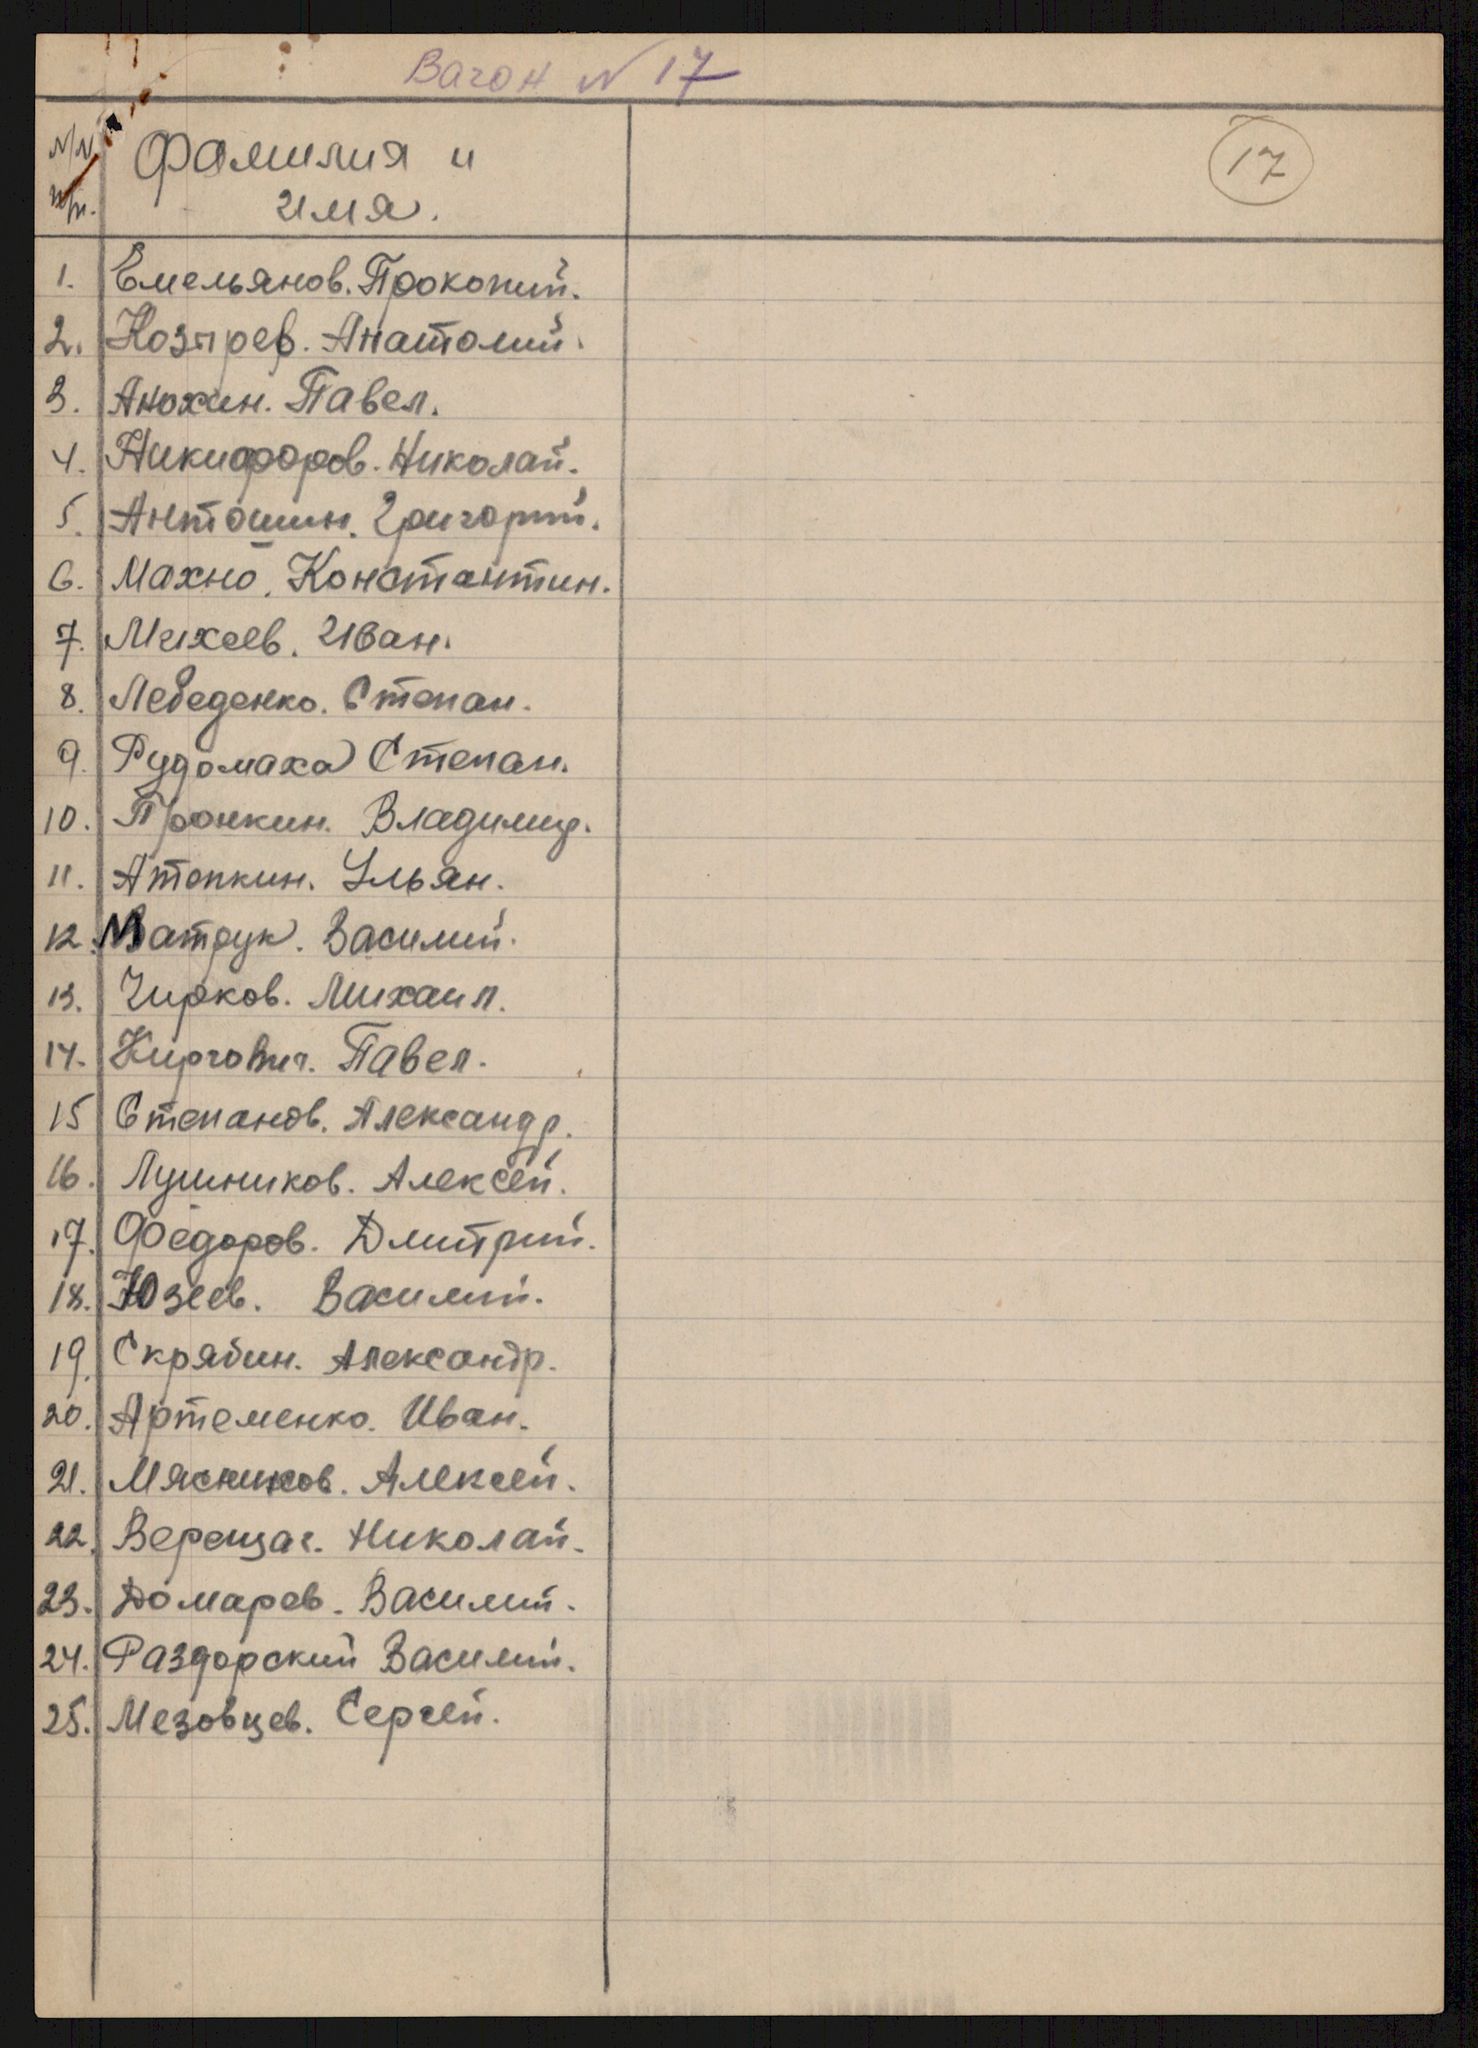 Вагон N 17
N/N
п/п.
Фамилия и
имя.
17
1. Емельянов. Прокопий.
2. Козырев. Анатолий.
3. Анохин. Павел.
4. Никифоров. Николай.
5. Антошин. Григорий.
6. Махно. Константин.
7. Михеев. Иван.
8. Лебеденко. Степан.
9. Рудомаха Степан.
10. Пронкин. Владимир.
11. Атопкин. Ульян.
12. Матрук. Василий.
13. Чирков. Михаил.
14. Киргович. Павел.
15 Степанов. Александр.
16. Лушников. Алексей.
17. Федоров. Дмитрий.
18. Юзеев. Василий.
19. Скрябин. Александр.
20. Артеменко. Иван.
21. Мясников. Алексей.
22. Верещаг. Николай.
23. Домарев. Василий.
24. Раздорский Василий.
25. Мезовцев. Сергей.